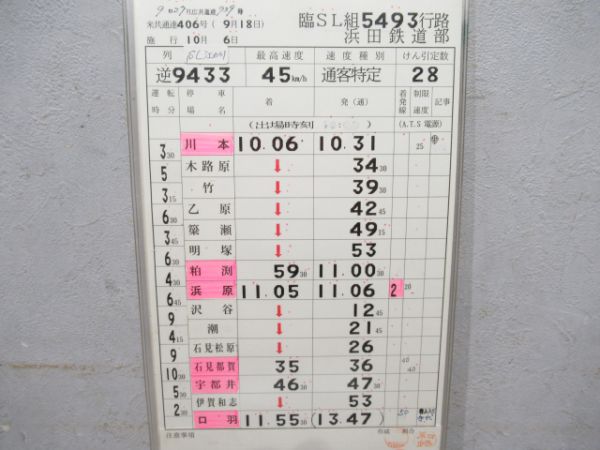 米共通達406号(9月18日)
臨SL組5493行路
施行 10月 6日
浜田鉄道部
列 最高速度 速度種別 けん引定数
逆9433 45km/h 通客特定 28
運転時分 停車場名 着 発(通) 着発線 制限速度 記事
(出場時刻 ) (A.T.S電源)
川本 10.06 10.31 25
3 30
木路原 ↓ 34 30
5
竹 ↓ 39 30
3 15
乙原 ↓ 42 45
6 30
簗瀬 ↓ 49 15
3 45
明塚 ↓ 53
6 30
粕渕 59 30 11.00 30
4 30
浜原 11.05 11.06 2 20
6 45
沢谷 ↓ 12 45
9
潮 ↓ 21 45
4 15
石見松原 ↓ 26
9
石見都賀 35 36 40
10 30
宇都井 46 30 47 30 40
5 30
伊賀和志 ↓ 53
2 30
口羽 11.55 30 (13.47) 50
注意事項